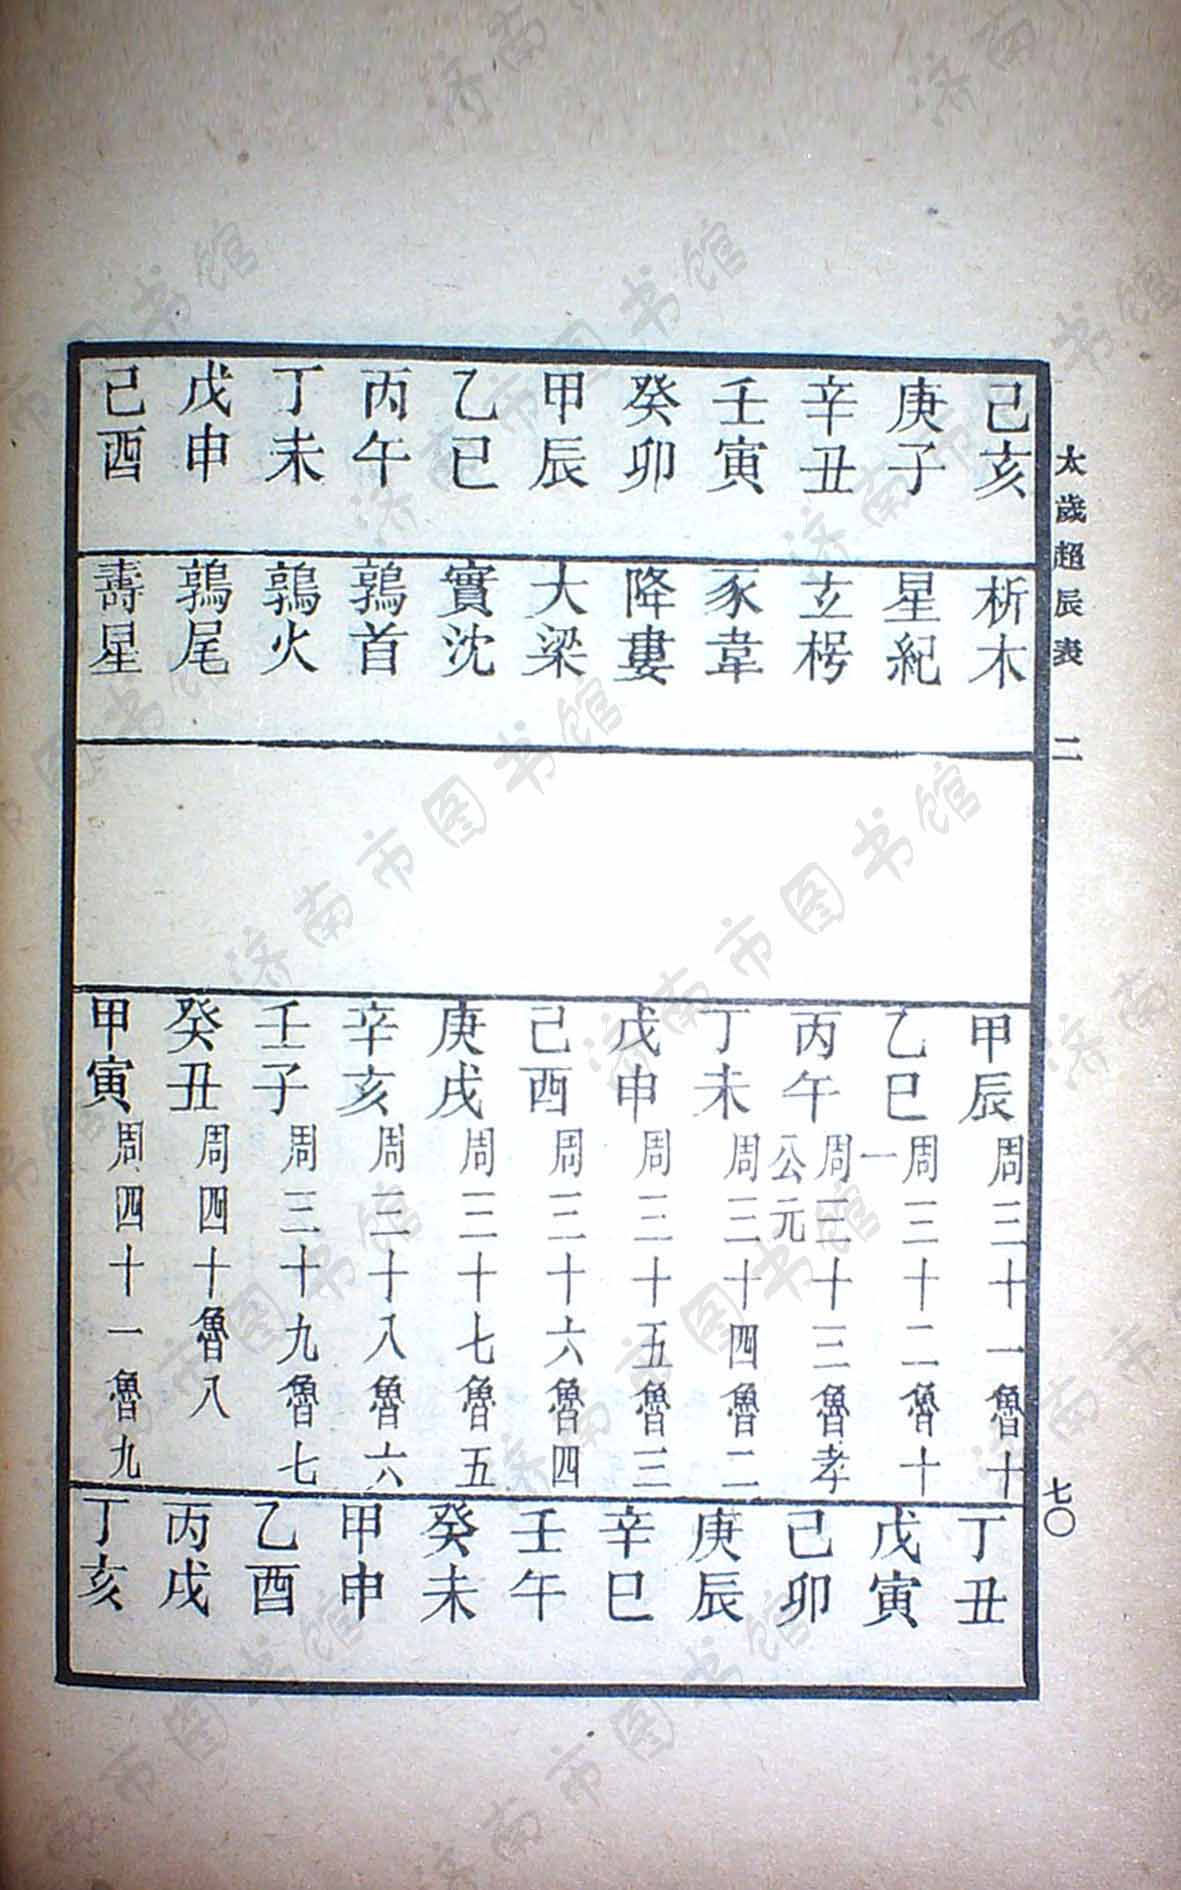 太歲超辰表 二
七〇
己亥
庚子
辛丑
壬寅
癸卯
甲辰
乙巳
丙午
丁未
戊申
己酉
析木
星紀
玄枵
豕韋
降婁
大梁
實沈
鶉首
鶉火
鶉尾
壽星
甲辰周三十一魯十
乙巳周三十二魯十一
丙午周三十三魯孝公元
丁未周三十四魯二
戊申周三十五魯三
己酉周三十六魯四
庚戌周三十七魯五
辛亥周三十八魯六
壬子周三十九魯七
癸丑周四十魯八
甲寅周四十一魯九
丁丑
戊寅
己卯
庚辰
辛巳
壬午
癸未
甲申
乙酉
丙戌
丁亥
济南市图书馆